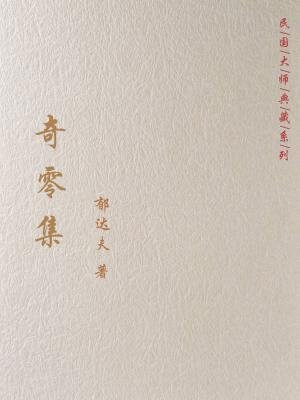 民/国/大/师/典/藏/系/列
奇零集
郁达夫 著